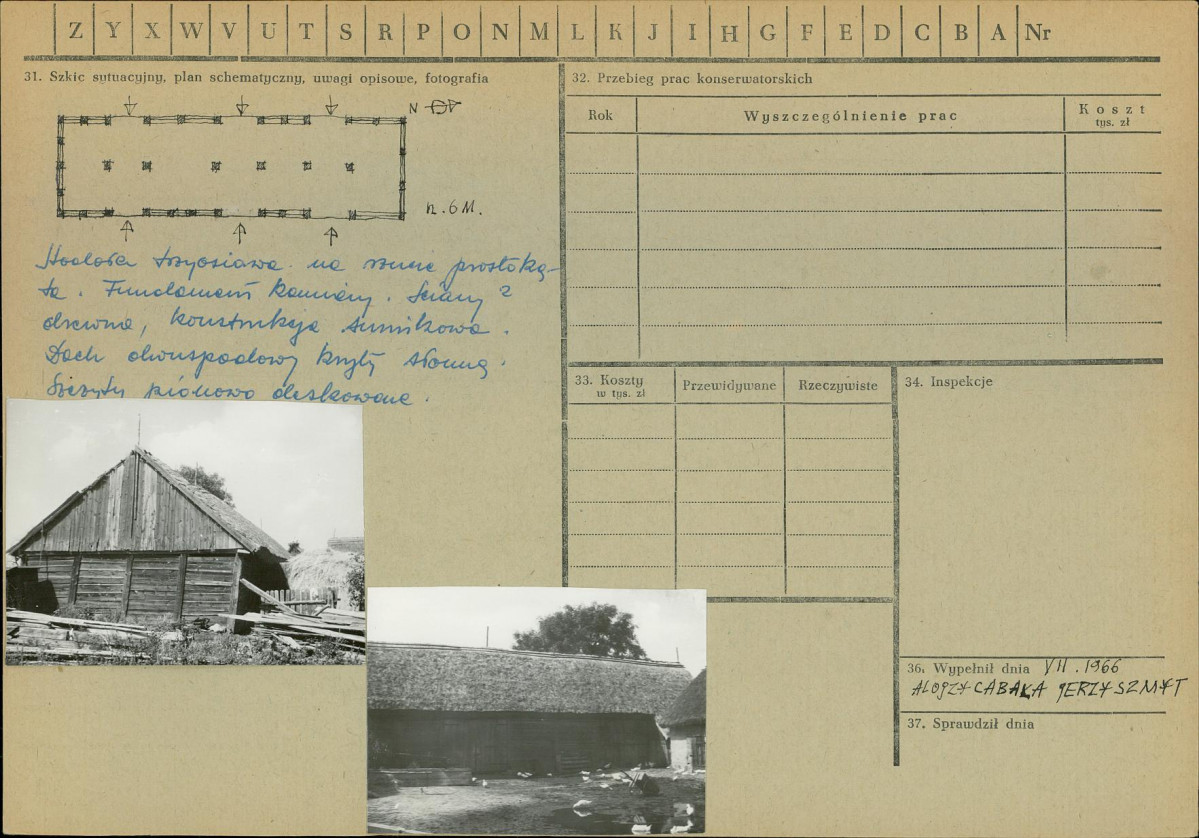 Z Y X W V U T S R P O N M L K J I H G F E D C B A Nr
31. Szkic sytuacyjny, plan schematyczny, uwagi opisowe, fotografia
N
n. 6 M.
Stodoła trzyosiowa na rzucie prostoką-
ta. Fundament kamienny. Ściany z
drewna, konstrukcja sumikowa.
Dach dwuspadowy kryty słomą.
Szczyty pionowo deskowane.
32. Przebieg prac konserwatorskich
Rok
Wyszczególnienie prac
Koszt
tys. zł
33. Koszty
w tys. zł
Przewidywane
Rzeczywiste
34. Inspekcje
36. Wypełnił dnia VII. 1966
ALOJZY CABAŁA JERZY SZMYT
37. Sprawdził dnia